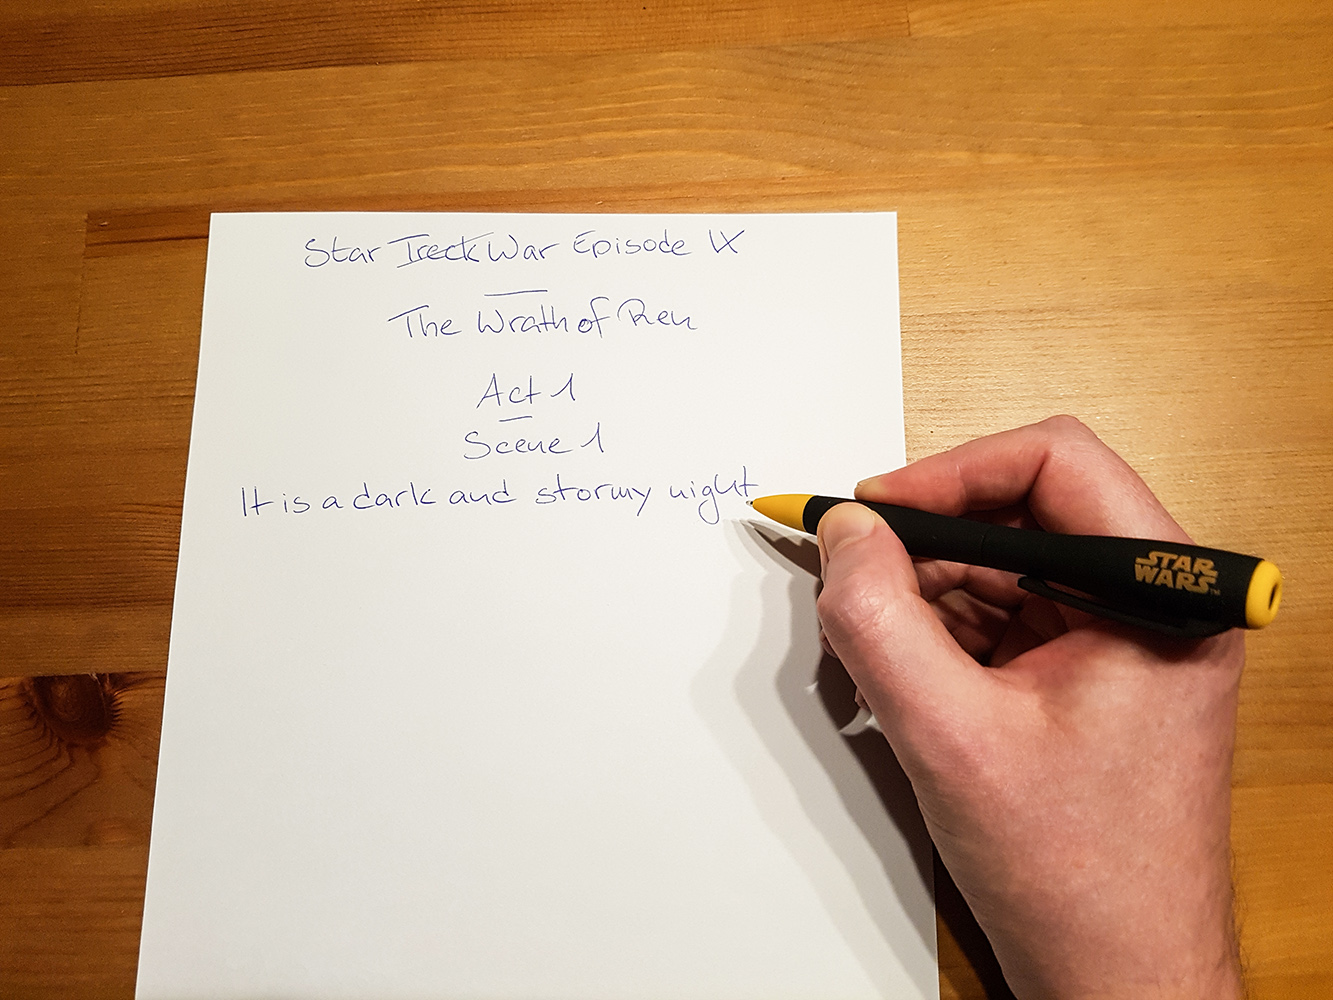 Star Treck War Episode IX
The Wrath of Ren
Act 1
Scene 1
It is a dark and stormy night
STAR
WARS™